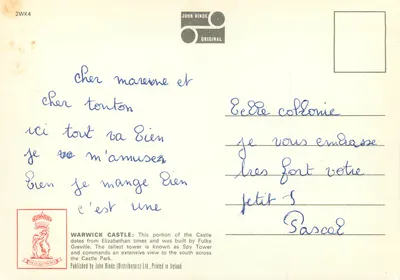 2WK4
JOHN HINDE
ORIGINAL
cher marenne et
cher tonton
ici tout va bien
je m'amuser
bien je mange bien
c'est une
belle collonie
je vous embrasse
tres fort votre
petit
Pascal
WARWICK CASTLE: This portion of the Castle
dates from Elizabethan times and was built by Fulke
Greville. The tallest tower is known as Spy Tower
and commands an extensive view to the south across
the Castle Park.
Published by John Hinde (Distributors) Ltd., Printed in Ireland.